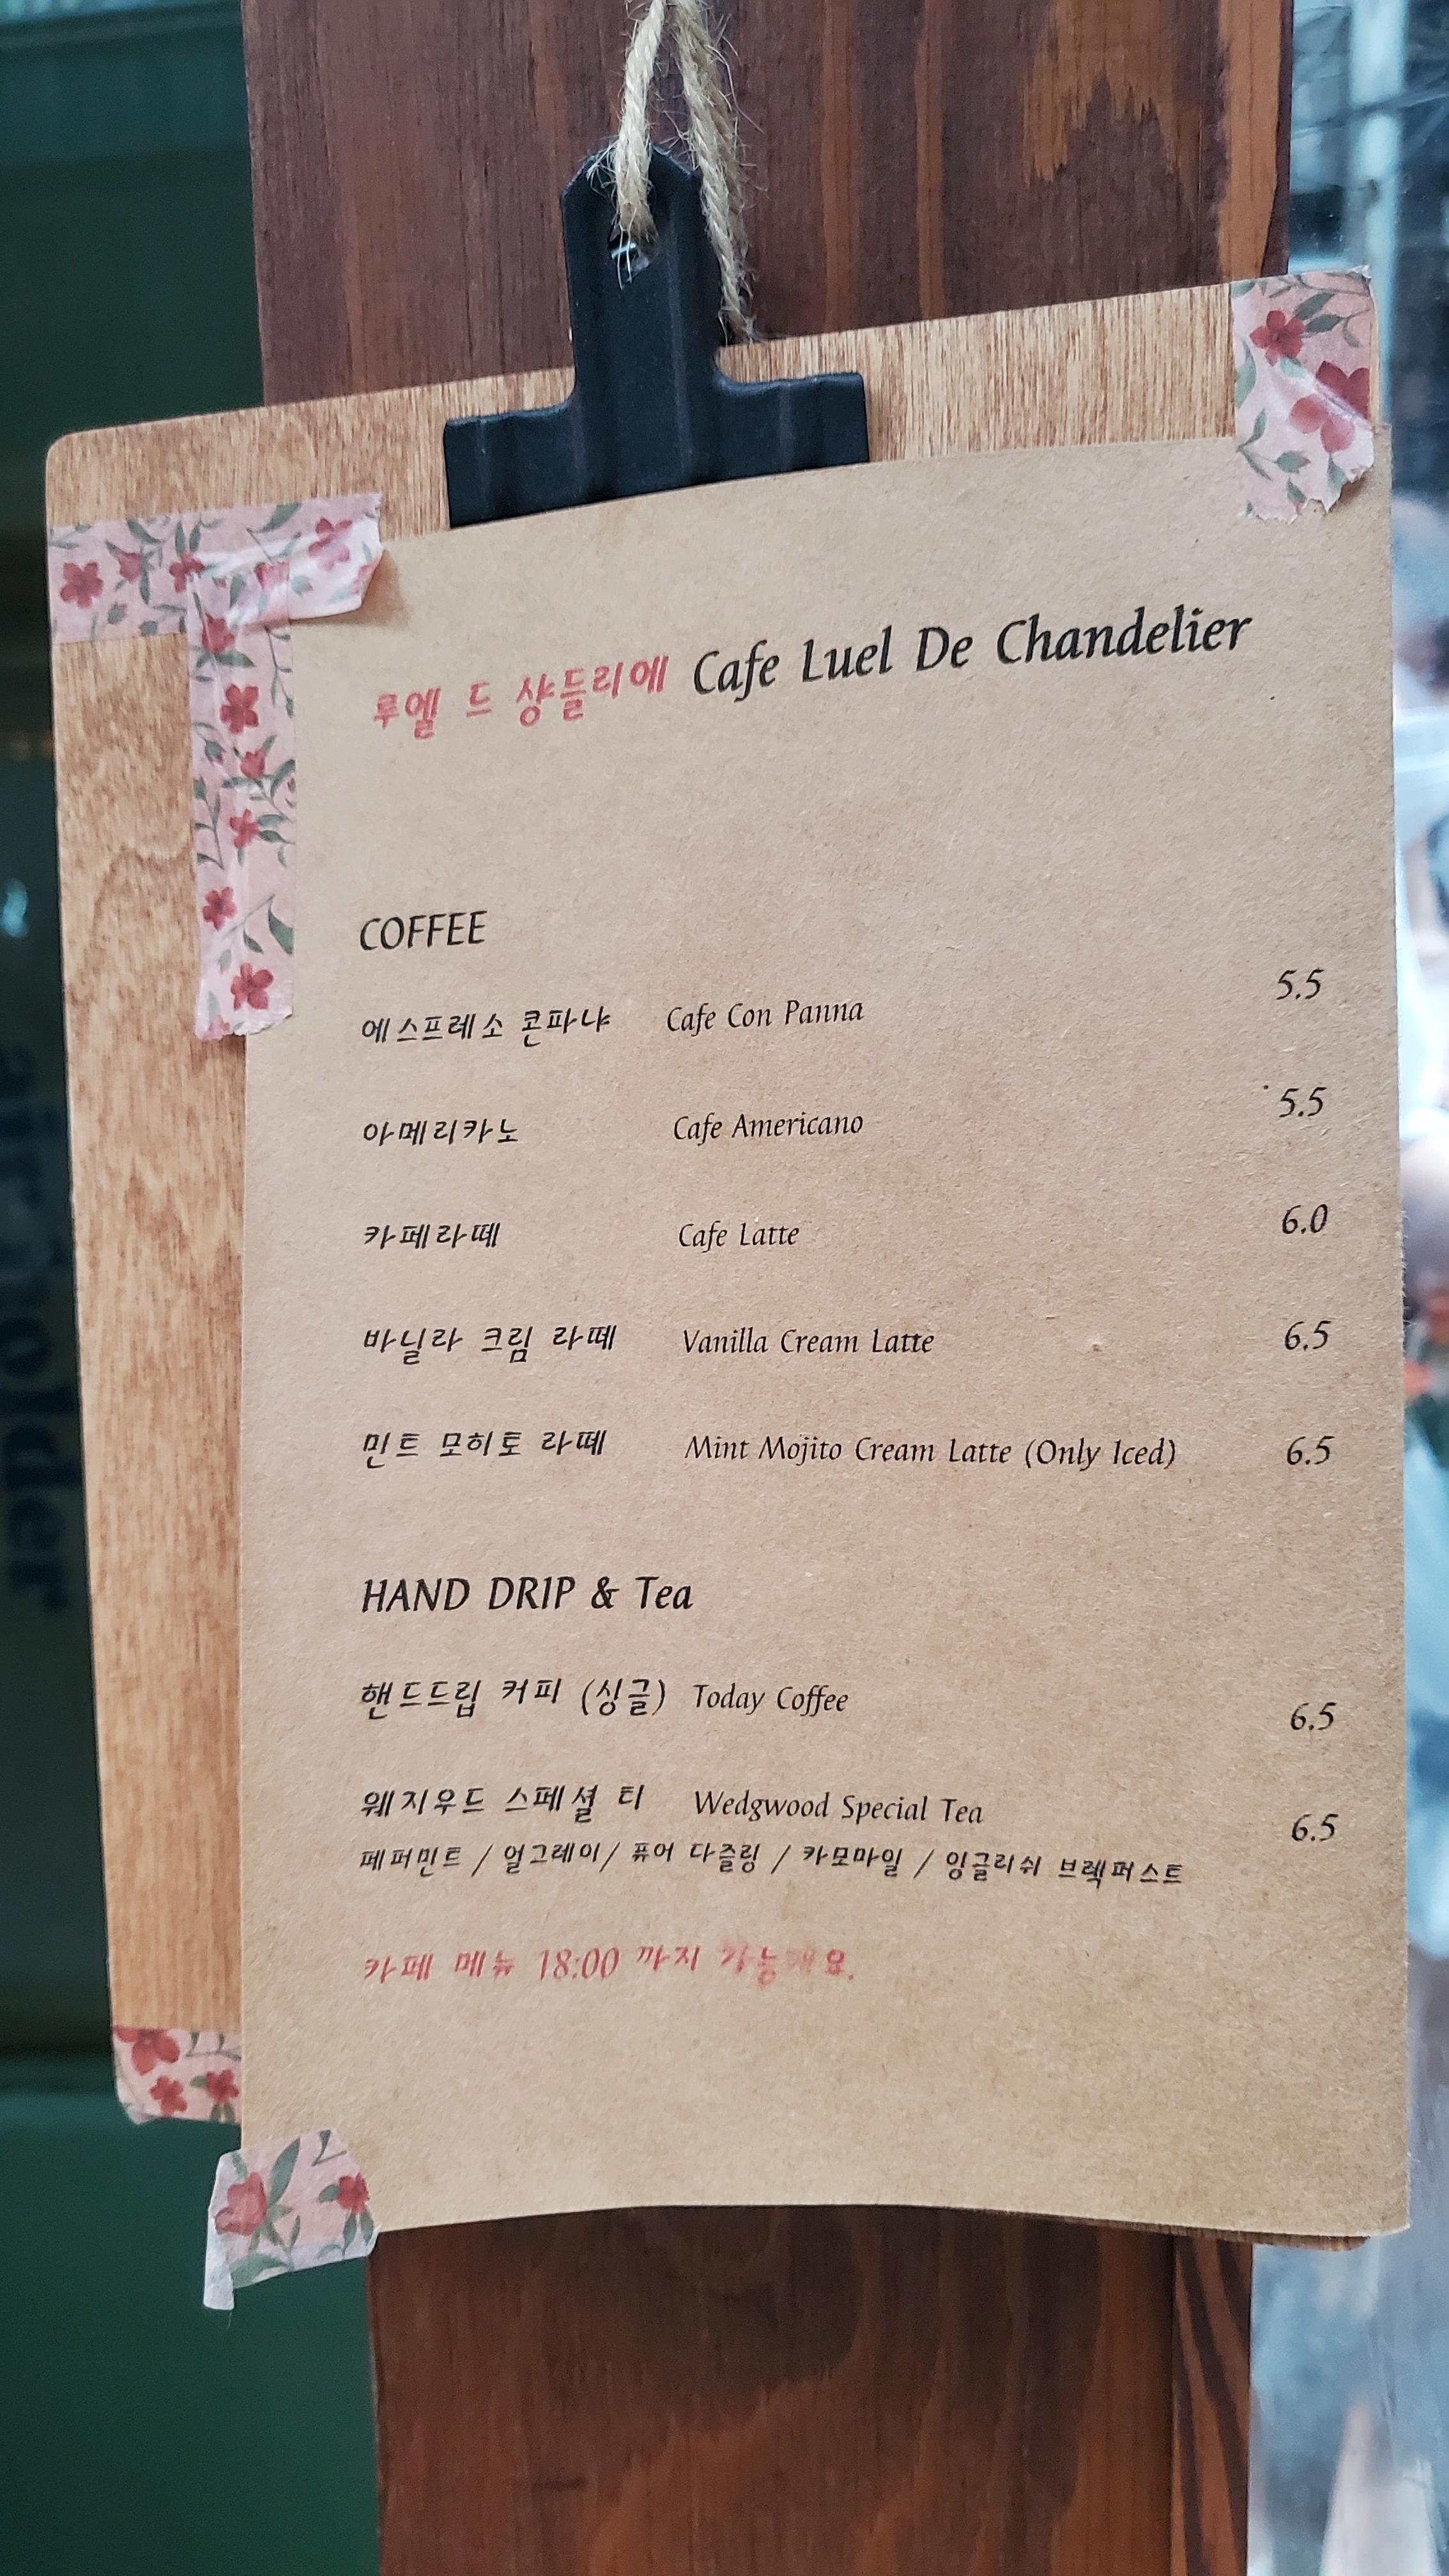 루엘 드 샹들리에 Cafe Luel De Chandelier
COFFEE
에스프레소 콘파냐 Cafe Con Panna 5.5
아메리카노 Cafe Americano 5.5
카페라떼 Cafe Latte 6.0
바닐라 크림 라떼 Vanilla Cream Latte 6.5
민트 모히토 라떼 Mint Mojito Cream Latte (Only Iced) 6.5
HAND DRIP & Tea
핸드드립 커피 (싱글) Today Coffee 6.5
웨지우드 스페셜 티 Wedgwood Special Tea 6.5
페퍼민트 / 얼그레이/ 퓨어 다즐링 / 카모마일 / 잉글리쉬 브렉퍼스트
카페 메뉴 18:00 까지 가능해요.